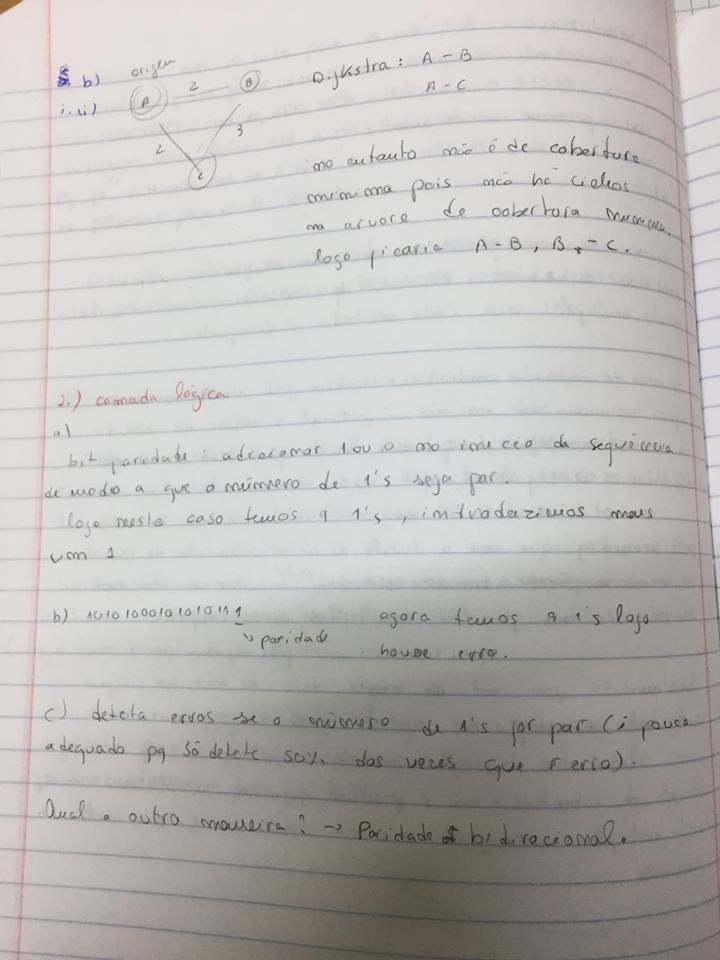 b) origem
i.ii) A 2 B Dijkstra: A - B
A - C
2 3
C
no entanto não é de cobertura
minima pois não há ciclos
na arvore de cobertura minima,
logo ficaria A-B, B - C.
2.) camada lógica
a)
bit paridade: adicionar 1 ou 0 no inicio da sequência
de modo a que o número de 1's seja par.
logo neste caso temos 9 1's, introduzimos mais
um 1
b) 1010100010101011 1 agora temos 9 1's logo
↳ paridade houve erro.
c) deteta erros se o número de 1's for par (i pouco
adequado pq só detete 50% das vezes que é erro).
Qual a outra maneira? → Paridade bidirecional.